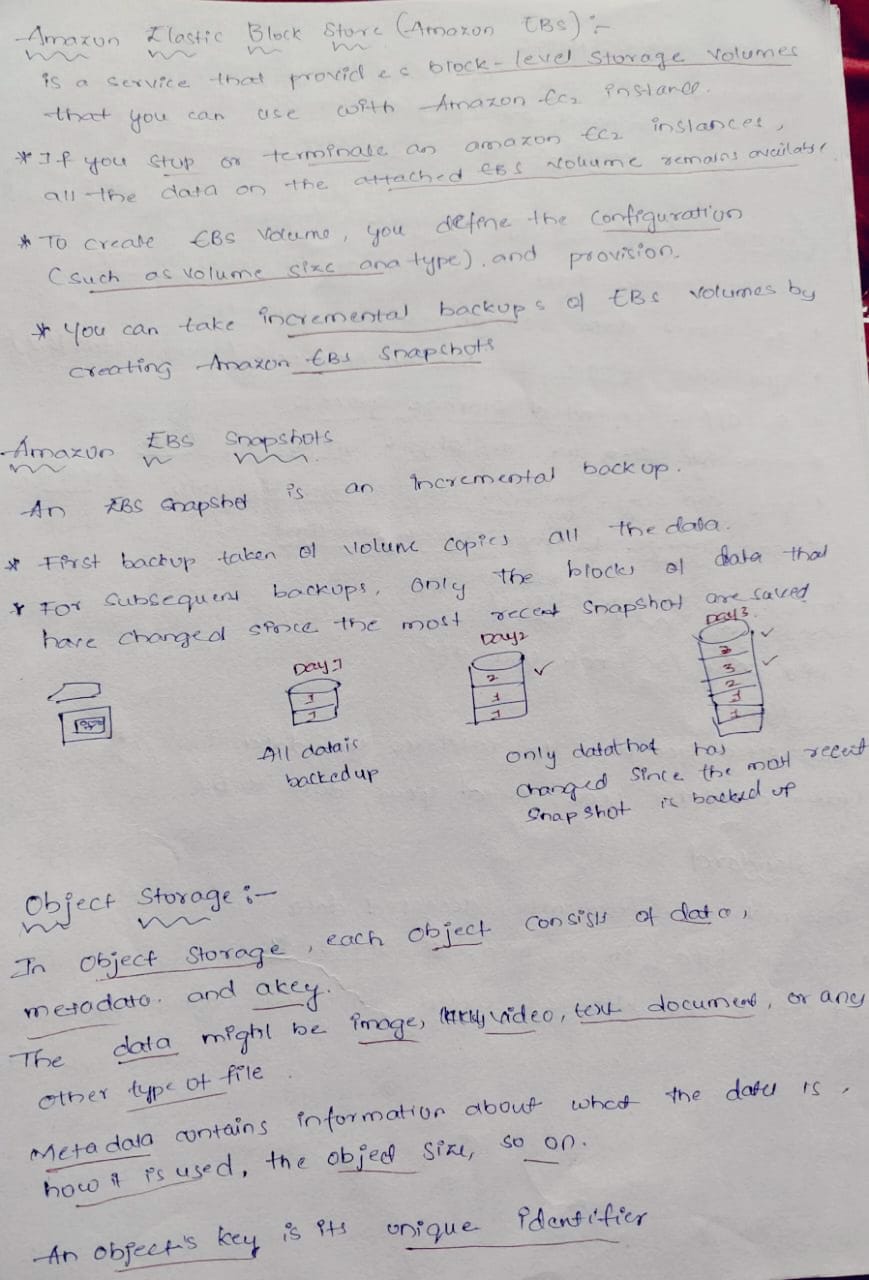 Amazon Elastic Block Store (Amazon EBS) :-
is a service that provides block-level storage volumes
that you can use with Amazon EC2 instance.
* If you stop or terminate an amazon EC2 instances,
all the data on the attached EBS volume remains available
* To create EBS volume, you define the configuration
(such as volume size and type). and provision.
* you can take incremental backups of EBS volumes by
creating Amazon EBS snapshots
Amazon EBS snapshots
An EBS snapshot is an incremental backup.
* First backup taken of volume copies all the data.
* For subsequent backups, only the blocks of data that
have changed since the most recent snapshot are saved
Day:1 Day2 Day3
1
1
2
1
1
3
3
2
1
1
All data is
backed up
only data that has
changed since the most recent
snapshot is backed up
Object Storage :-
In object storage, each object consists of data,
metadata. and a key.
The data might be image, video, text document, or any
other type of file.
Meta data contains information about what the data is,
how it is used, the object size, so on.
An object's key is its unique identifier